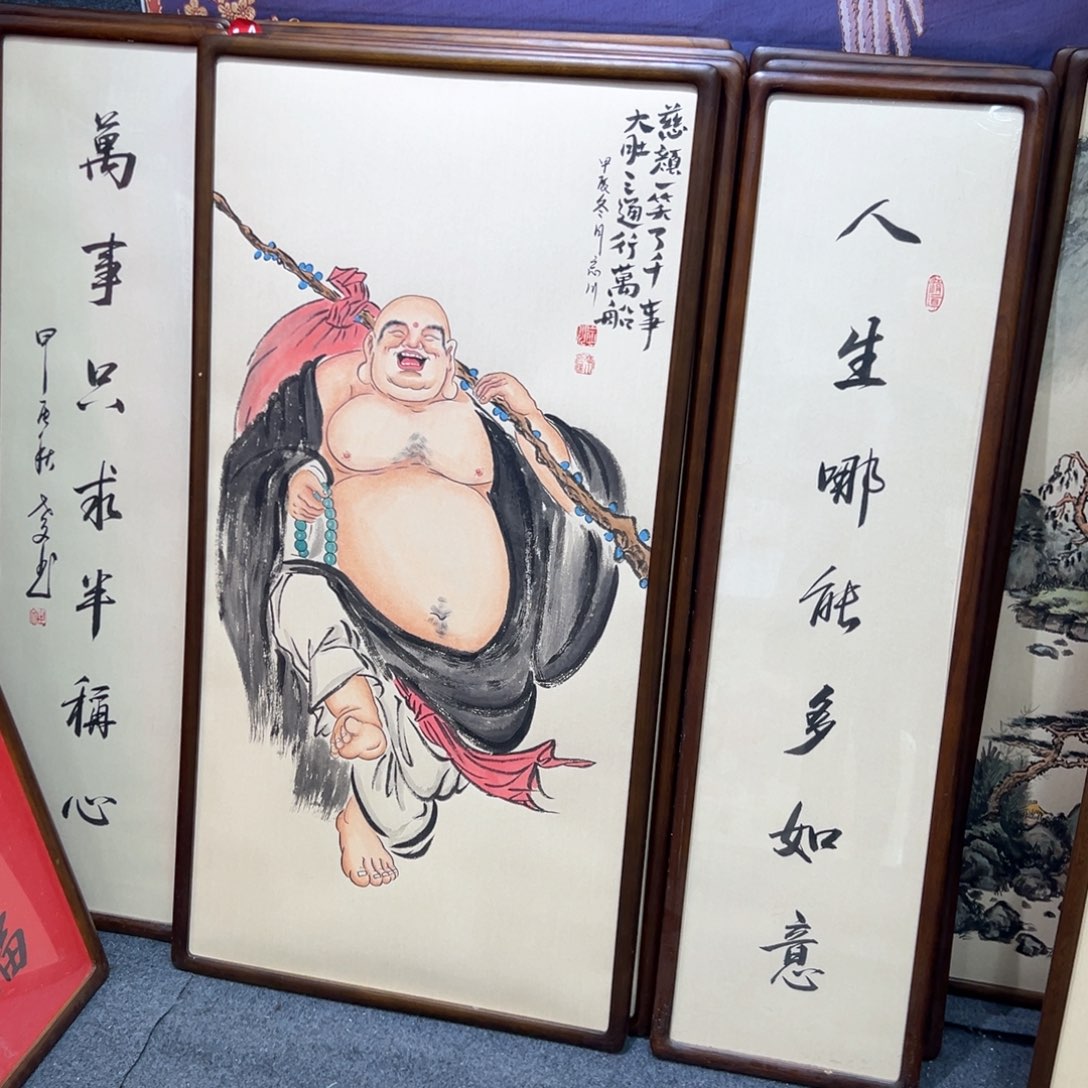 人生哪能多如意
萬事只求半稱心
甲辰秋
慈顏一笑了千事
大肚三通行萬船
甲辰冬月
福